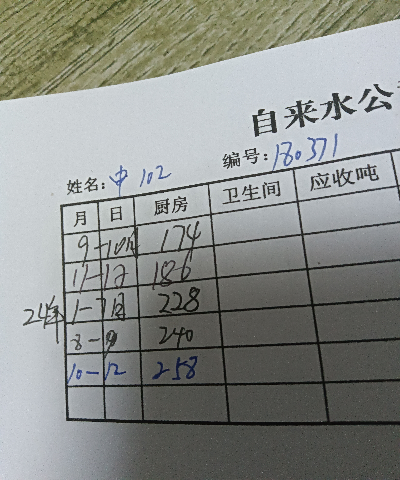 自来水公
姓名: 中 102 编号: 180371
月 日 厨房 卫生间 应收吨
9-10月 174
11-12 186
24年 1-7月 228
8-9 240
10-12 258